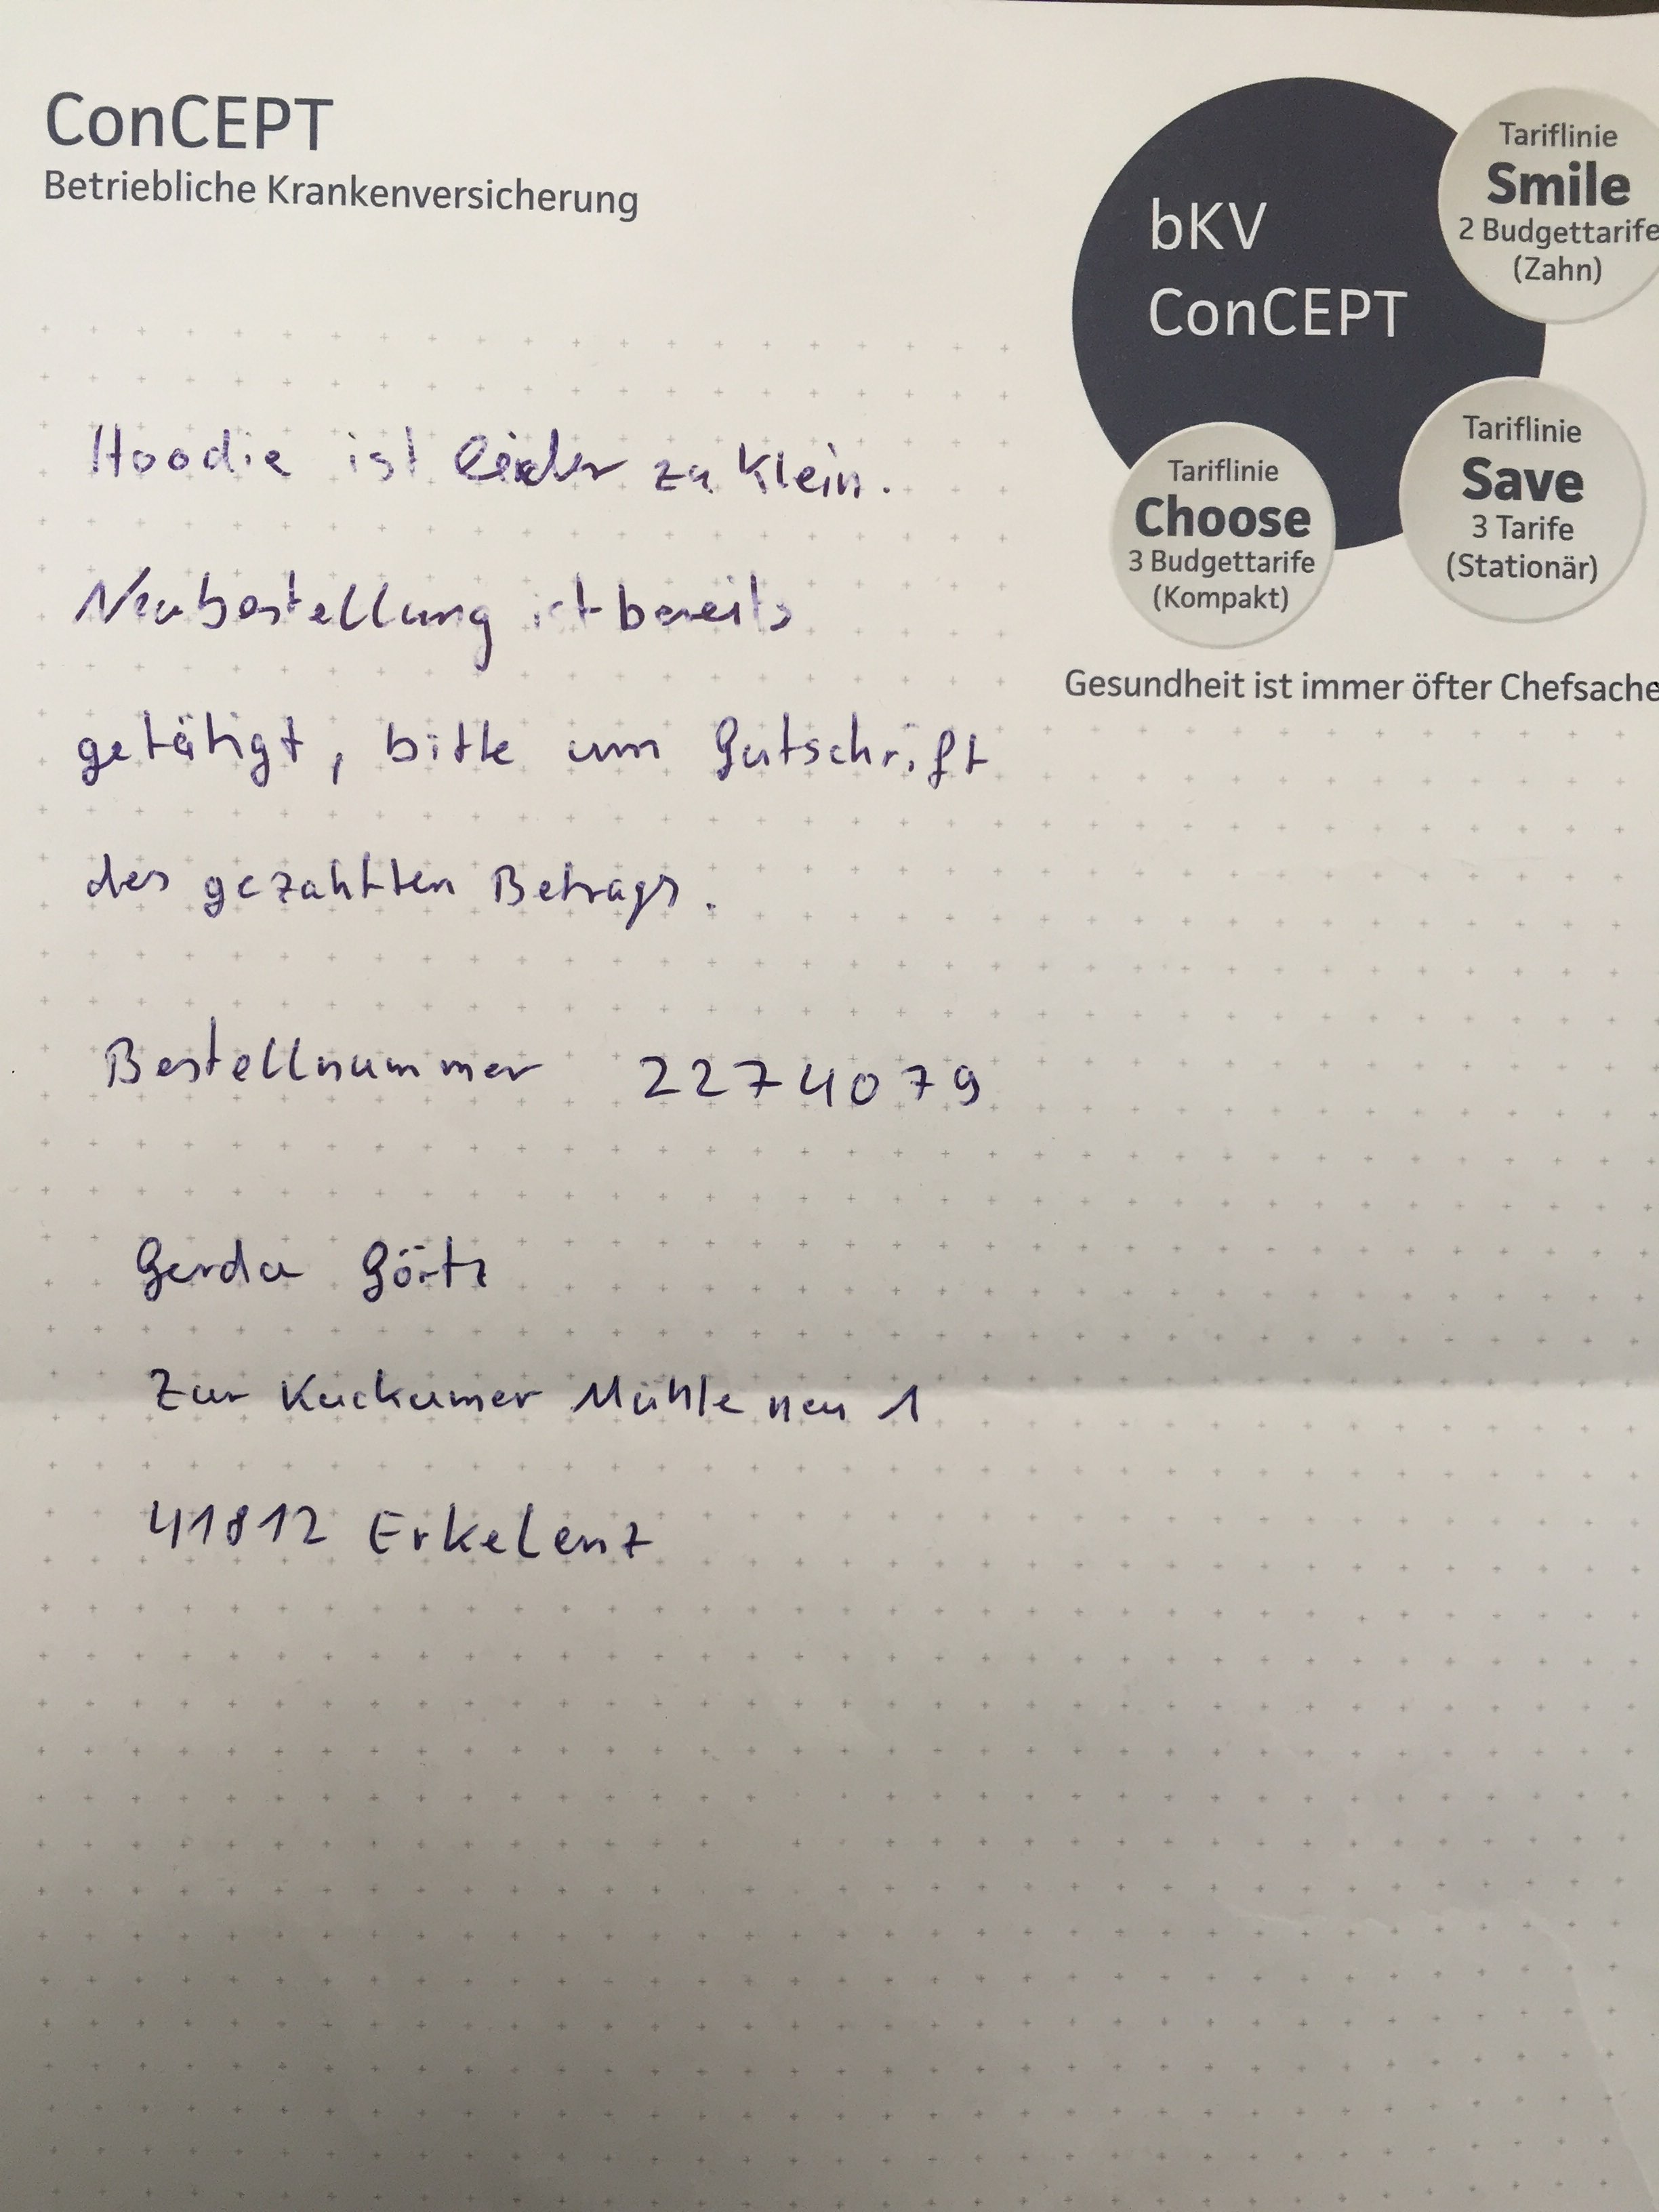 ConCEPT
Betriebliche Krankenversicherung
bKV
ConCEPT
Tariflinie
Smile
2 Budgettarife
(Zahn)
Tariflinie
Save
3 Tarife
(Stationär)
Tariflinie
Choose
3 Budgettarife
(Kompakt)
Gesundheit ist immer öfter Chefsache
Hoodie ist leider zu klein.
Neubestellung ist bereits
getätigt, bitte um Gutschrift
des gezahlten Betrags.
Bestellnummer 2274079
Gerda Görtz
Zur Kuckumer Mühle neu 1
41812 Erkelenz